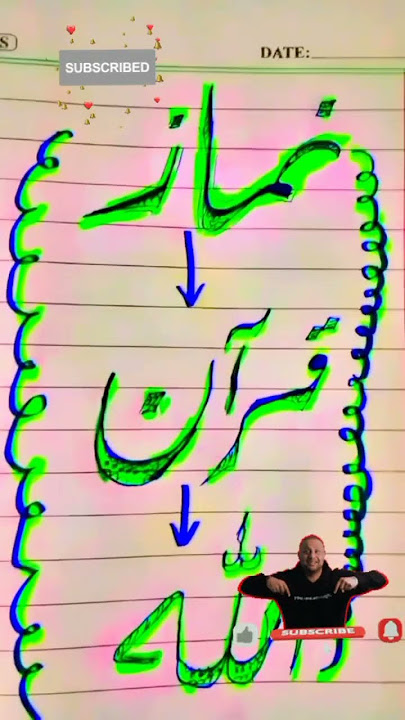 S
DATE:
SUBSCRIBED
نماز
قرآن
اللہ
SUBSCRIBE